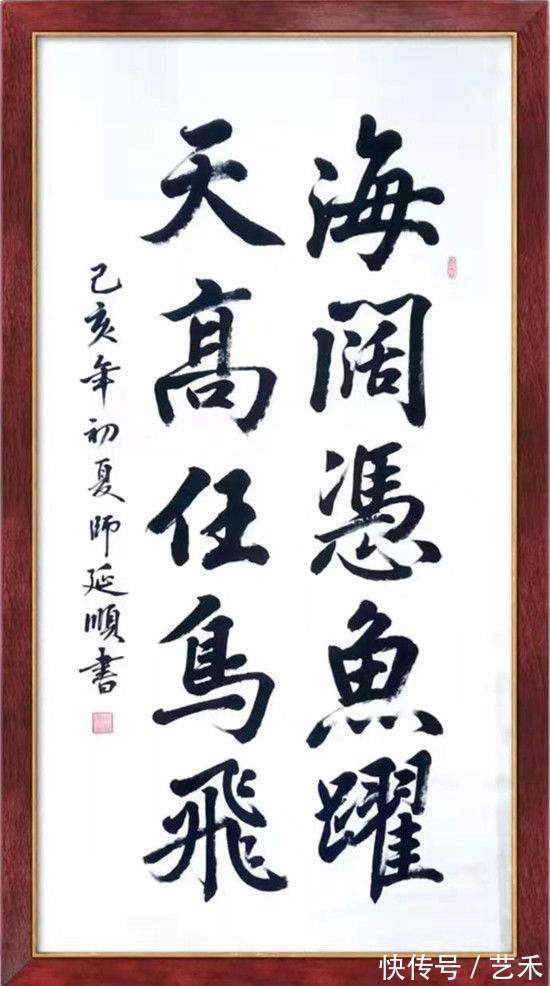 海闊憑魚躍
天高任鳥飛
己亥年初夏師延順書
快传号 / 艺禾